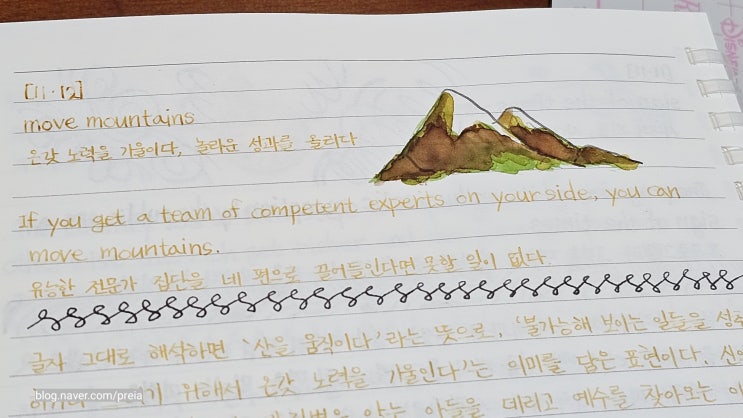 [11·12]
move mountains
온갖 노력을 기울이다, 놀라운 성과를 올리다
If you get a team of competent experts on your side, you can
move mountains.
유능한 전문가 집단을 네 편으로 끌어들인다면 못할 일이 없다.
글자 그대로 해석하면 '산을 움직이다'라는 뜻으로, '불가능해 보이는 일들을 성취
위해서 온갖 노력을 기울인다'는 의미를 담은 표현이다.
앓는 아들을 데리고 예수를 찾아오는
blog.naver.com/preia